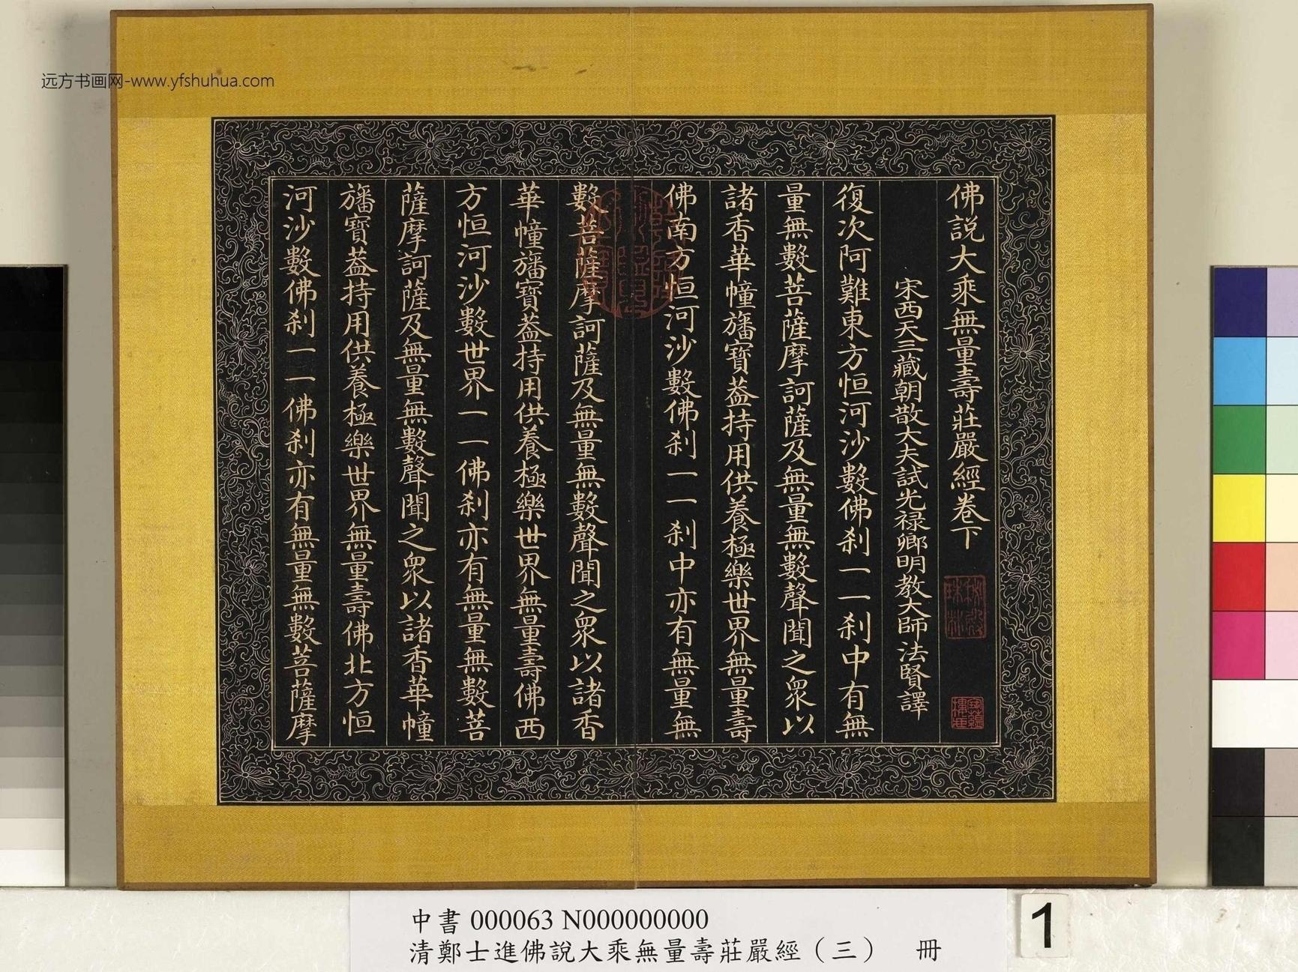 远方书画网-www.yfshuhua.com
佛説大乘無量壽莊嚴經卷下
宋西天三藏朝散大夫試光禄卿明教大師法賢譯
復次阿難東方恒河沙數佛刹一一刹中有無
量無數菩薩摩訶薩及無量無數聲聞之衆以
諸香華幢旛寶葢持用供養極樂世界無量壽
佛南方恒河沙數佛刹一一刹中亦有無量無
數菩薩摩訶薩及無量無數聲聞之衆以諸香
華幢旛寶葢持用供養極樂世界無量壽佛西
方恒河沙數世界一一佛刹亦有無量無數菩
薩摩訶薩及無量無數聲聞之衆以諸香華幢
旛寶葢持用供養極樂世界無量壽佛北方恒
河沙數佛刹一一佛刹亦有無量無數菩薩摩
中書 000063 N000000000
清鄭士進佛說大乘無量壽莊嚴經（三） 冊
1